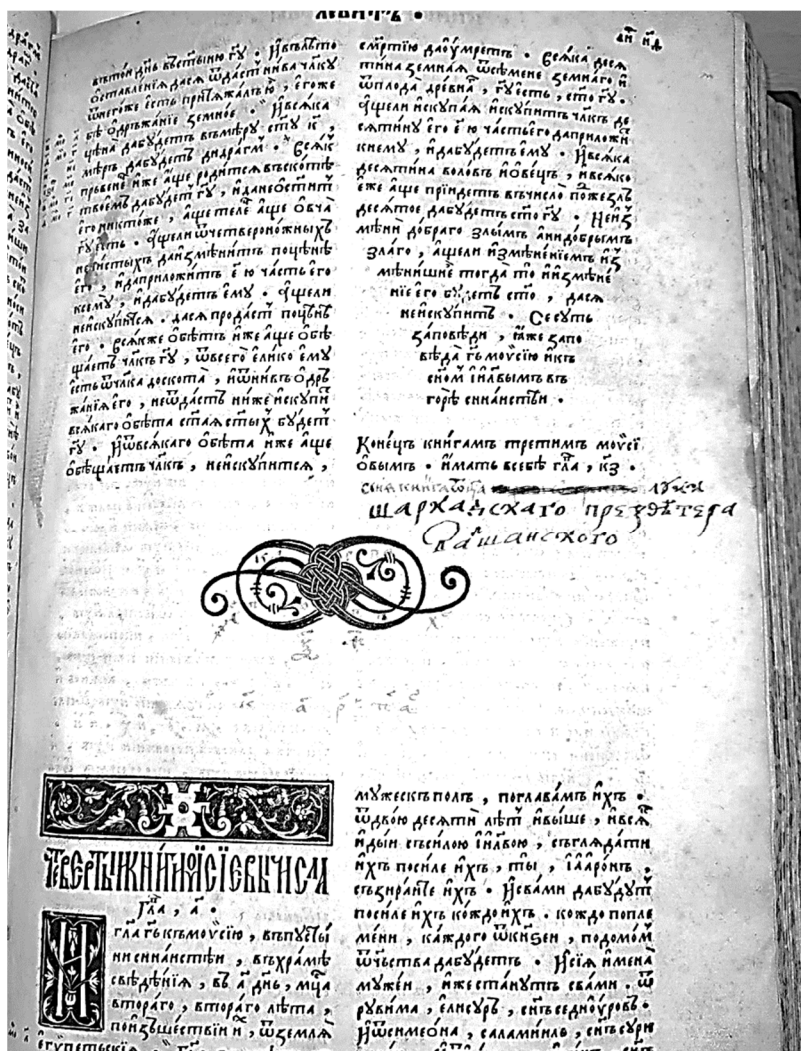 ЛЕВИТЪ •
въто́и дн҃ь въст҃ы́ню гу҃ • И҆въ лѣ́то
ѡ҆ставле́нїѧ да сѧ ѿда́стъ ни́ва чл҃ку
ѿнего́же є҆́сть притѧжа́лъ ю҆̀ , є҆го́же
бѣ̀ ѡ҆держа́нїе земно́е • И҆всѧ́ка
цѣна̀ да бу́детъ въмѣ́ру ст҃у , к҃ ,
мѣ́ръ да бу́детъ дидра́гмъ • Всѧ́къ
пе́рвене и҆́же а҆́ще роди́тсѧ въскотѣ̀
твое́мъ да бу́детъ гу҃ , и҆да не ѡ҆стни́тъ
є҆го̀ никто́же , а҆́ще телѐ а҆́ще ѻ҆вча̀
гу҃ є҆́сть • А҆́ще ли ѿчетвероно́жныхъ
нечи́стыхъ да и҆змѣни́тъ поцѣнѣ̀
є҆го̀ , и҆да приложи́тъ е҃ ю҆ ча́сть є҆го̀
ксему̀ , и҆да бу́детъ є҆му̀ • А҆́ще ли
не и҆ску́питсѧ • да сѧ прода́стъ поцѣнѣ̀
є҆го̀ • Всѧ́къ же ѻ҆бѣ́тъ и҆́же а҆́ще ѻ҆бѣ
ща́етъ чл҃къ гу҃ , ѿвсего̀ є҆ли́ко є҆му̀
є҆́сть ѿчл҃ка до скота̀ , и҆ѿни́въ ѻ҆дръ
жа́нїѧ є҆го̀ , не ѿда́стъ ниже и҆ску́питъ
всѧ́каго ѻ҆бѣ́та ст҃аѧ ст҃ы́хъ бу́детъ
гу҃ • И҆ѿвсѧ́каго ѻ҆бѣ́та и҆́же а҆́ще
ѻ҆бѣща́етъ чл҃къ , не и҆ску́питсѧ ,
сме́ртїю да у҆́мретъ • Всѧ́ка десѧ
ти́на земна́ѧ ѿсѣ́мене земна́го и҆
ѿплода̀ дре́вна , гу҃ є҆́сть , ст҃о гу҃ •
А҆́ще ли и҆скупа́ѧ и҆ску́питъ чл҃къ де
сѧти́ну є҆го̀ е҃ ю҆ ча́сть є҆го̀ да приложи́
кнему̀ , и҆да бу́детъ є҆му̀ • И҆всѧ́ка
десѧти́на воло́въ и҆ѻ҆ве́цъ , и҆всѧ́ко
є҆́же а҆́ще прїи́детъ въчисло̀ поже́злъ
десѧ́тое да бу́детъ ст҃о гу҃ • Не и҆з
мѣ́ни до́браго злы́мъ а҆нидо́брымъ
зла́го , а҆́ще ли и҆змѣне́нїемъ и҆з
мѣни́ши є҆̀ тогда̀ то̀ и҆и҆змѣне́
нїе є҆го̀ бу́детъ ст҃о , да сѧ
не и҆ску́питъ • Се су́ть
за́повѣди , ꙗ҆́же запо
вѣ́да гь҃ мѡѷсїю и҆къ
сн҃ом і҆и҃лвымъ въ
горѣ̀ сина́истѣи •
Коне́цъ кни́гамъ тре́тимъ мѡѷсї
ѻ҆вымъ • и҆́мать всебѣ̀ гла҃ , к҃з •
сѧ книга ѿца луки
шарханскаго презвѣтера
рашанскаго
ТВЕРТЫѦ КНИГИ МОѶСІЕВЫ ЧИСЛА
Гла҃ , а҃ •
И҆
гл҃а гь҃ къмѡѷсїю , въпусты́
ни сина́истѣи , въхра́мѣ
свѣдѣ́нїѧ , въ а҃ дн҃ь , мц҃а
втора́го , втора́го лѣ́та ,
поизъше́ствїи и҆́х , ѿземлѧ̀
є҆гѵ́петьскїѧ
му́жескъ по́лъ , поглава́мъ и҆́хъ •
ѿдвою̀ десѧ́ти лѣ́тъ и҆вы́ше , и҆всѧ́
и҆́дыи съси́лою і҆и҃лвою , съглѧда́ти
и҆́хъ поси́ле и҆́хъ , ты̀ , і҆а҆аро́нъ ,
съзира́ите и҆́хъ • И҆сва́ми да бу́дутъ
поси́ле и҆́хъ ко́ждо и҆́хъ • ко́ждо попле
мени , ка́ждого ѿкнѧзеи , подомо́мъ
ѿче́ства да бу́детъ • И҆сїѧ̀ и҆мена̀
муже́и , и҆́же ста́нутъ сва́ми • ѿ
руви́ма , є҆лису́ръ , сн҃ъ седиу́ровъ •
И҆ѿсимео́на , салами́илъ , сн҃ъ сури